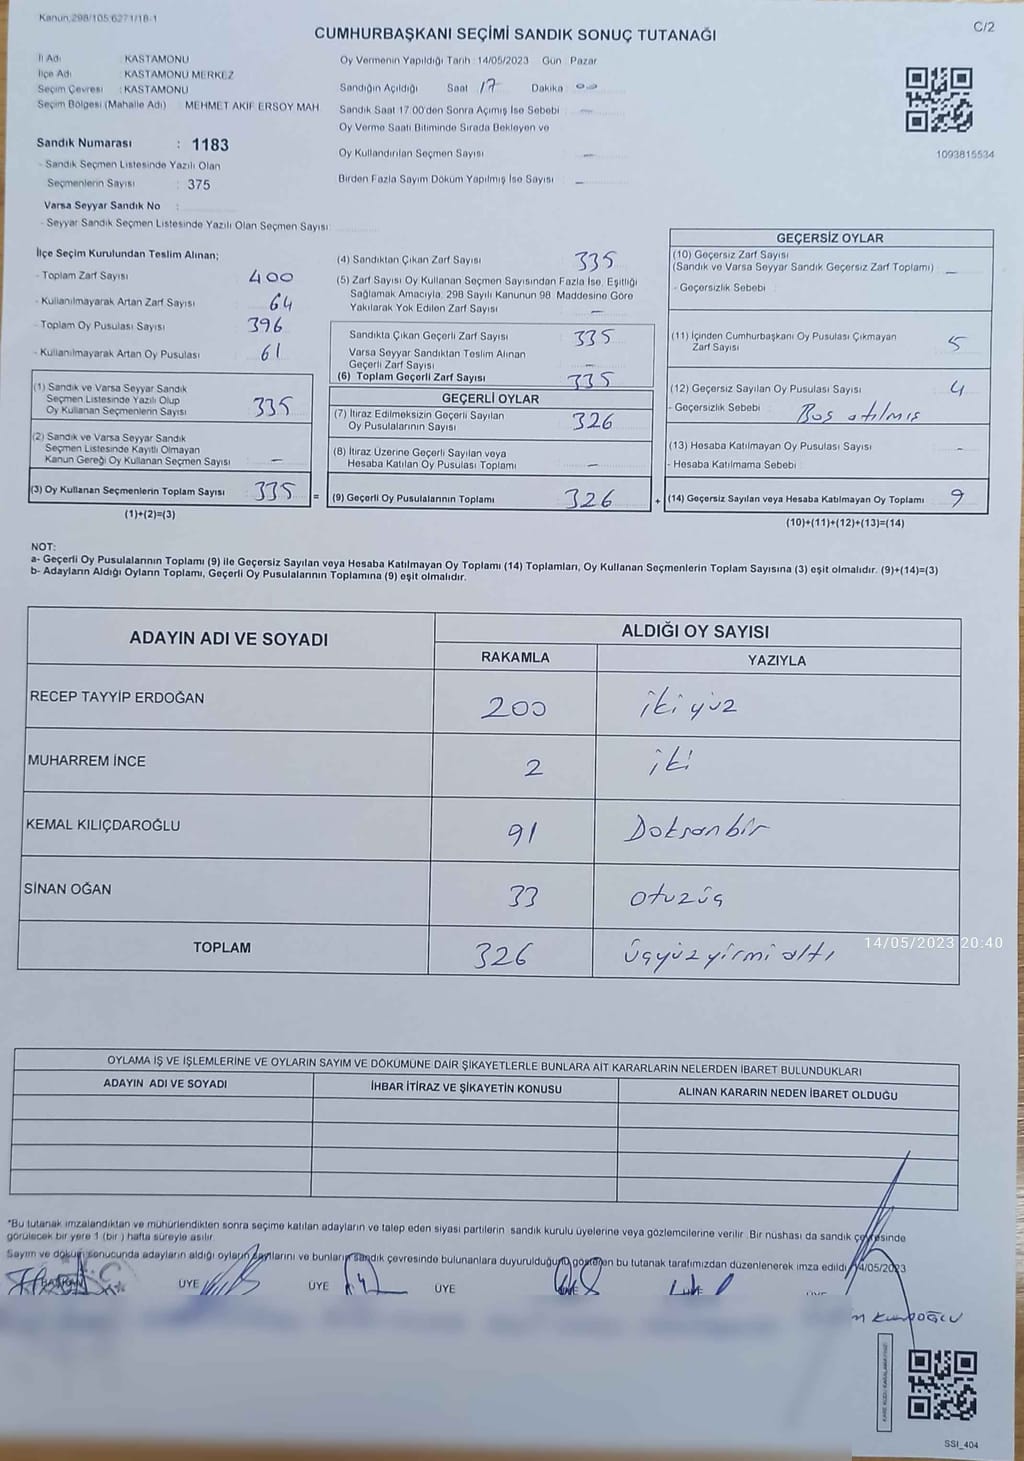 Kanun:298/105:6271/18-1
C/2
CUMHURBAŞKANI SEÇİMİ SANDIK SONUÇ TUTANAĞI
İl Adı : KASTAMONU
İlçe Adı : KASTAMONU MERKEZ
Seçim Çevresi : KASTAMONU
Seçim Bölgesi (Mahalle Adı) : MEHMET AKİF ERSOY MAH
Sandık Numarası : 1183
- Sandık Seçmen Listesinde Yazılı Olan
Seçmenlerin Sayısı : 375
Varsa Seyyar Sandık No :
- Seyyar Sandık Seçmen Listesinde Yazılı Olan Seçmen Sayısı
Oy Vermenin Yapıldığı Tarih : 14/05/2023 Gün : Pazar
Sandığın Açıldığı Saat 17 Dakika 00
Sandık Saat 17:00'den Sonra Açılmış İse Sebebi : —
Oy Verme Saati Bitiminde Sırada Bekleyen ve
Oy Kullandırılan Seçmen Sayısı —
Birden Fazla Sayım Döküm Yapılmış İse Sayısı —
1093815534
İlçe Seçim Kurulundan Teslim Alınan;
- Toplam Zarf Sayısı 400
- Kullanılmayarak Artan Zarf Sayısı 64
- Toplam Oy Pusulası Sayısı 396
- Kullanılmayarak Artan Oy Pusulası 61
(1) Sandık ve Varsa Seyyar Sandık
Seçmen Listesinde Yazılı Olup
Oy Kullanan Seçmenlerin Sayısı 335
(2) Sandık ve Varsa Seyyar Sandık
Seçmen Listesinde Kayıtlı Olmayan
Kanun Gereği Oy Kullanan Seçmen Sayısı —
(3) Oy Kullanan Seçmenlerin Toplam Sayısı 335 =
(1)+(2)=(3)
(4) Sandıktan Çıkan Zarf Sayısı 335
(5) Zarf Sayısı Oy Kullanan Seçmen Sayısından Fazla İse, Eşitliği
Sağlamak Amacıyla, 298 Sayılı Kanunun 98. Maddesine Göre
Yakılarak Yok Edilen Zarf Sayısı —
Sandıkta Çıkan Geçerli Zarf Sayısı 335
Varsa Seyyar Sandıktan Teslim Alınan
Geçerli Zarf Sayısı —
(6) Toplam Geçerli Zarf Sayısı 335
GEÇERLİ OYLAR
(7) İtiraz Edilmeksizin Geçerli Sayılan
Oy Pusulalarının Sayısı 326
(8) İtiraz Üzerine Geçerli Sayılan veya
Hesaba Katılan Oy Pusulası Toplamı —
(9) Geçerli Oy Pusulalarının Toplamı 326 +
GEÇERSİZ OYLAR
(10) Geçersiz Zarf Sayısı
(Sandık ve Varsa Seyyar Sandık Geçersiz Zarf Toplamı) —
- Geçersizlik Sebebi
(11) İçinden Cumhurbaşkanı Oy Pusulası Çıkmayan
Zarf Sayısı 5
(12) Geçersiz Sayılan Oy Pusulası Sayısı 4
- Geçersizlik Sebebi Boş atılmış
(13) Hesaba Katılmayan Oy Pusulası Sayısı —
- Hesaba Katılmama Sebebi
(14) Geçersiz Sayılan veya Hesaba Katılmayan Oy Toplamı 9
(10)+(11)+(12)+(13)=(14)
NOT:
a- Geçerli Oy Pusulalarının Toplamı (9) ile Geçersiz Sayılan veya Hesaba Katılmayan Oy Toplamı (14) Toplamları, Oy Kullanan Seçmenlerin Toplam Sayısına (3) eşit olmalıdır. (9)+(14)=(3)
b- Adayların Aldığı Oyların Toplamı, Geçerli Oy Pusulalarının Toplamına (9) eşit olmalıdır.
ADAYIN ADI VE SOYADI
ALDIĞI OY SAYISI
RAKAMLA YAZIYLA
RECEP TAYYİP ERDOĞAN 200 iki yüz
MUHARREM İNCE 2 iki
KEMAL KILIÇDAROĞLU 91 Doksanbir
SİNAN OĞAN 33 otuzüç
TOPLAM 326 üçyüz yirmi altı
14/05/2023 20:40
OYLAMA İŞ VE İŞLEMLERİNE VE OYLARIN SAYIM VE DÖKÜMÜNE DAİR ŞİKAYETLERLE BUNLARA AİT KARARLARIN NELERDEN İBARET BULUNDUKLARI
ADAYIN ADI VE SOYADI İHBAR İTİRAZ VE ŞİKAYETİN KONUSU ALINAN KARARIN NEDEN İBARET OLDUĞU
*Bu tutanak imzalandıktan ve mühürlendikten sonra seçime katılan adayların ve talep eden siyasi partilerin sandık kurulu üyelerine veya gözlemcilerine verilir. Bir nüshası da sandık çevresinde
görülecek bir yere 1 (bir ) hafta süreyle asılır.
Sayım ve döküm sonucunda adayların aldığı oyların sayılarını ve bunların sandık çevresinde bulunanlara duyurulduğunu gösteren bu tutanak tarafımızdan düzenlenerek imza edildi. 14/05/2023
BAŞKAN ÜYE ÜYE ÜYE
SSİ_404